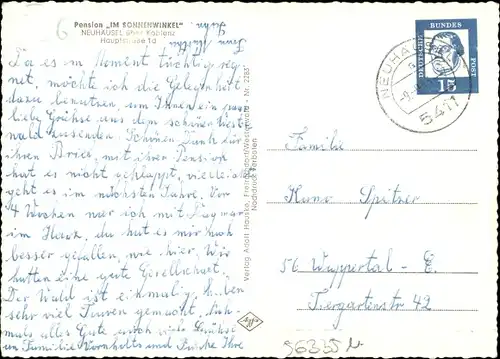 Pension „IM SONNENWINKEL"
NEUHÄUSEL über Koblenz
Hauptstrasse 1d
Da es im Moment tüchtig reg-
net, möchte ich die Gelegenheit
dazu benutzen, um Ihnen ein paar
liebe Grüsse aus dem schönen Wester-
wald zu senden. Schönen Dank für
Ihren Brief, mit ihrer Pension
hat es nicht geklappt, vielleicht
geht es im nächsten Jahre. Vor
4 Wochen war ich mit Dagmar
im Harz, du hat es mir auch
besser gefallen, wie hier. Wir
hatten eine gute Gesellschaft.
Der Wald ist einmalig, haben
sehr viel Touren gemacht. Noch-
mals alles Gute auch viele Grüsse
an Familie und Ihre
Verlag Adolf Hauske, Freilendorf/Westerwald - Nr. 2283
Nachdruck verboten
DEUTSCHE BUNDES POST
15
NEUHÄUSEL
5411
Familie
Kuno Spitzer
56 Wuppertal - E.
Tiergartenstr. 42
96335